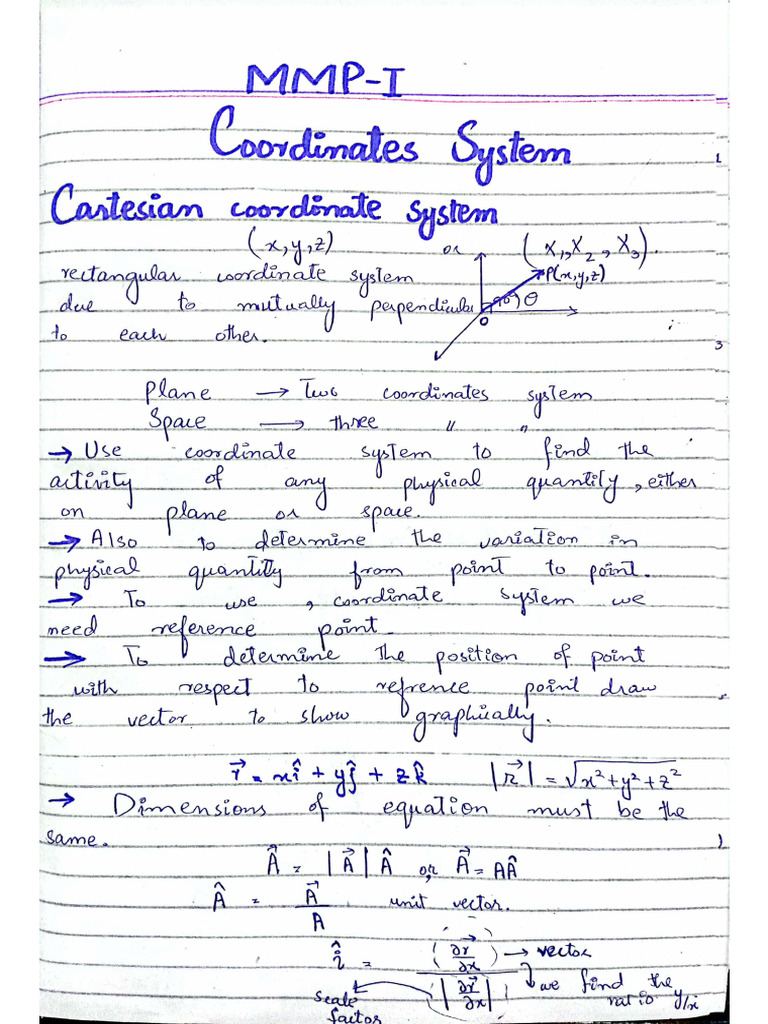 MMP-I
Coordinates System
1
Cartesian coordinate system
(x,y,z) or (X1,X2,X3).
rectangular coordinate system
P(x,y,z)
due to mutually perpendicular
90°) θ
o
to each other.
3
Plane → Two coordinates system
Space → three " "
→ Use coordinate system to find the
activity of any physical quantity, either
on plane or space.
→ Also to determine the variation in
physical quantity from point to point.
→ To use, coordinate system we
need reference point.
→ To determine the position of point
with respect to refrence point draw
the vector to show graphically.
r⃗ = xî + yĵ + zk̂ |r⃗| = √x²+y²+z²
→ Dimensions of equation must be the
same.
A⃗ = |A⃗| Â or, A⃗ = AÂ
 = A⃗/A unit vector.
î = (∂r⃗/∂x) → vector
|∂r⃗/∂x| ↳ we find the
ratio y/x
scale
factor